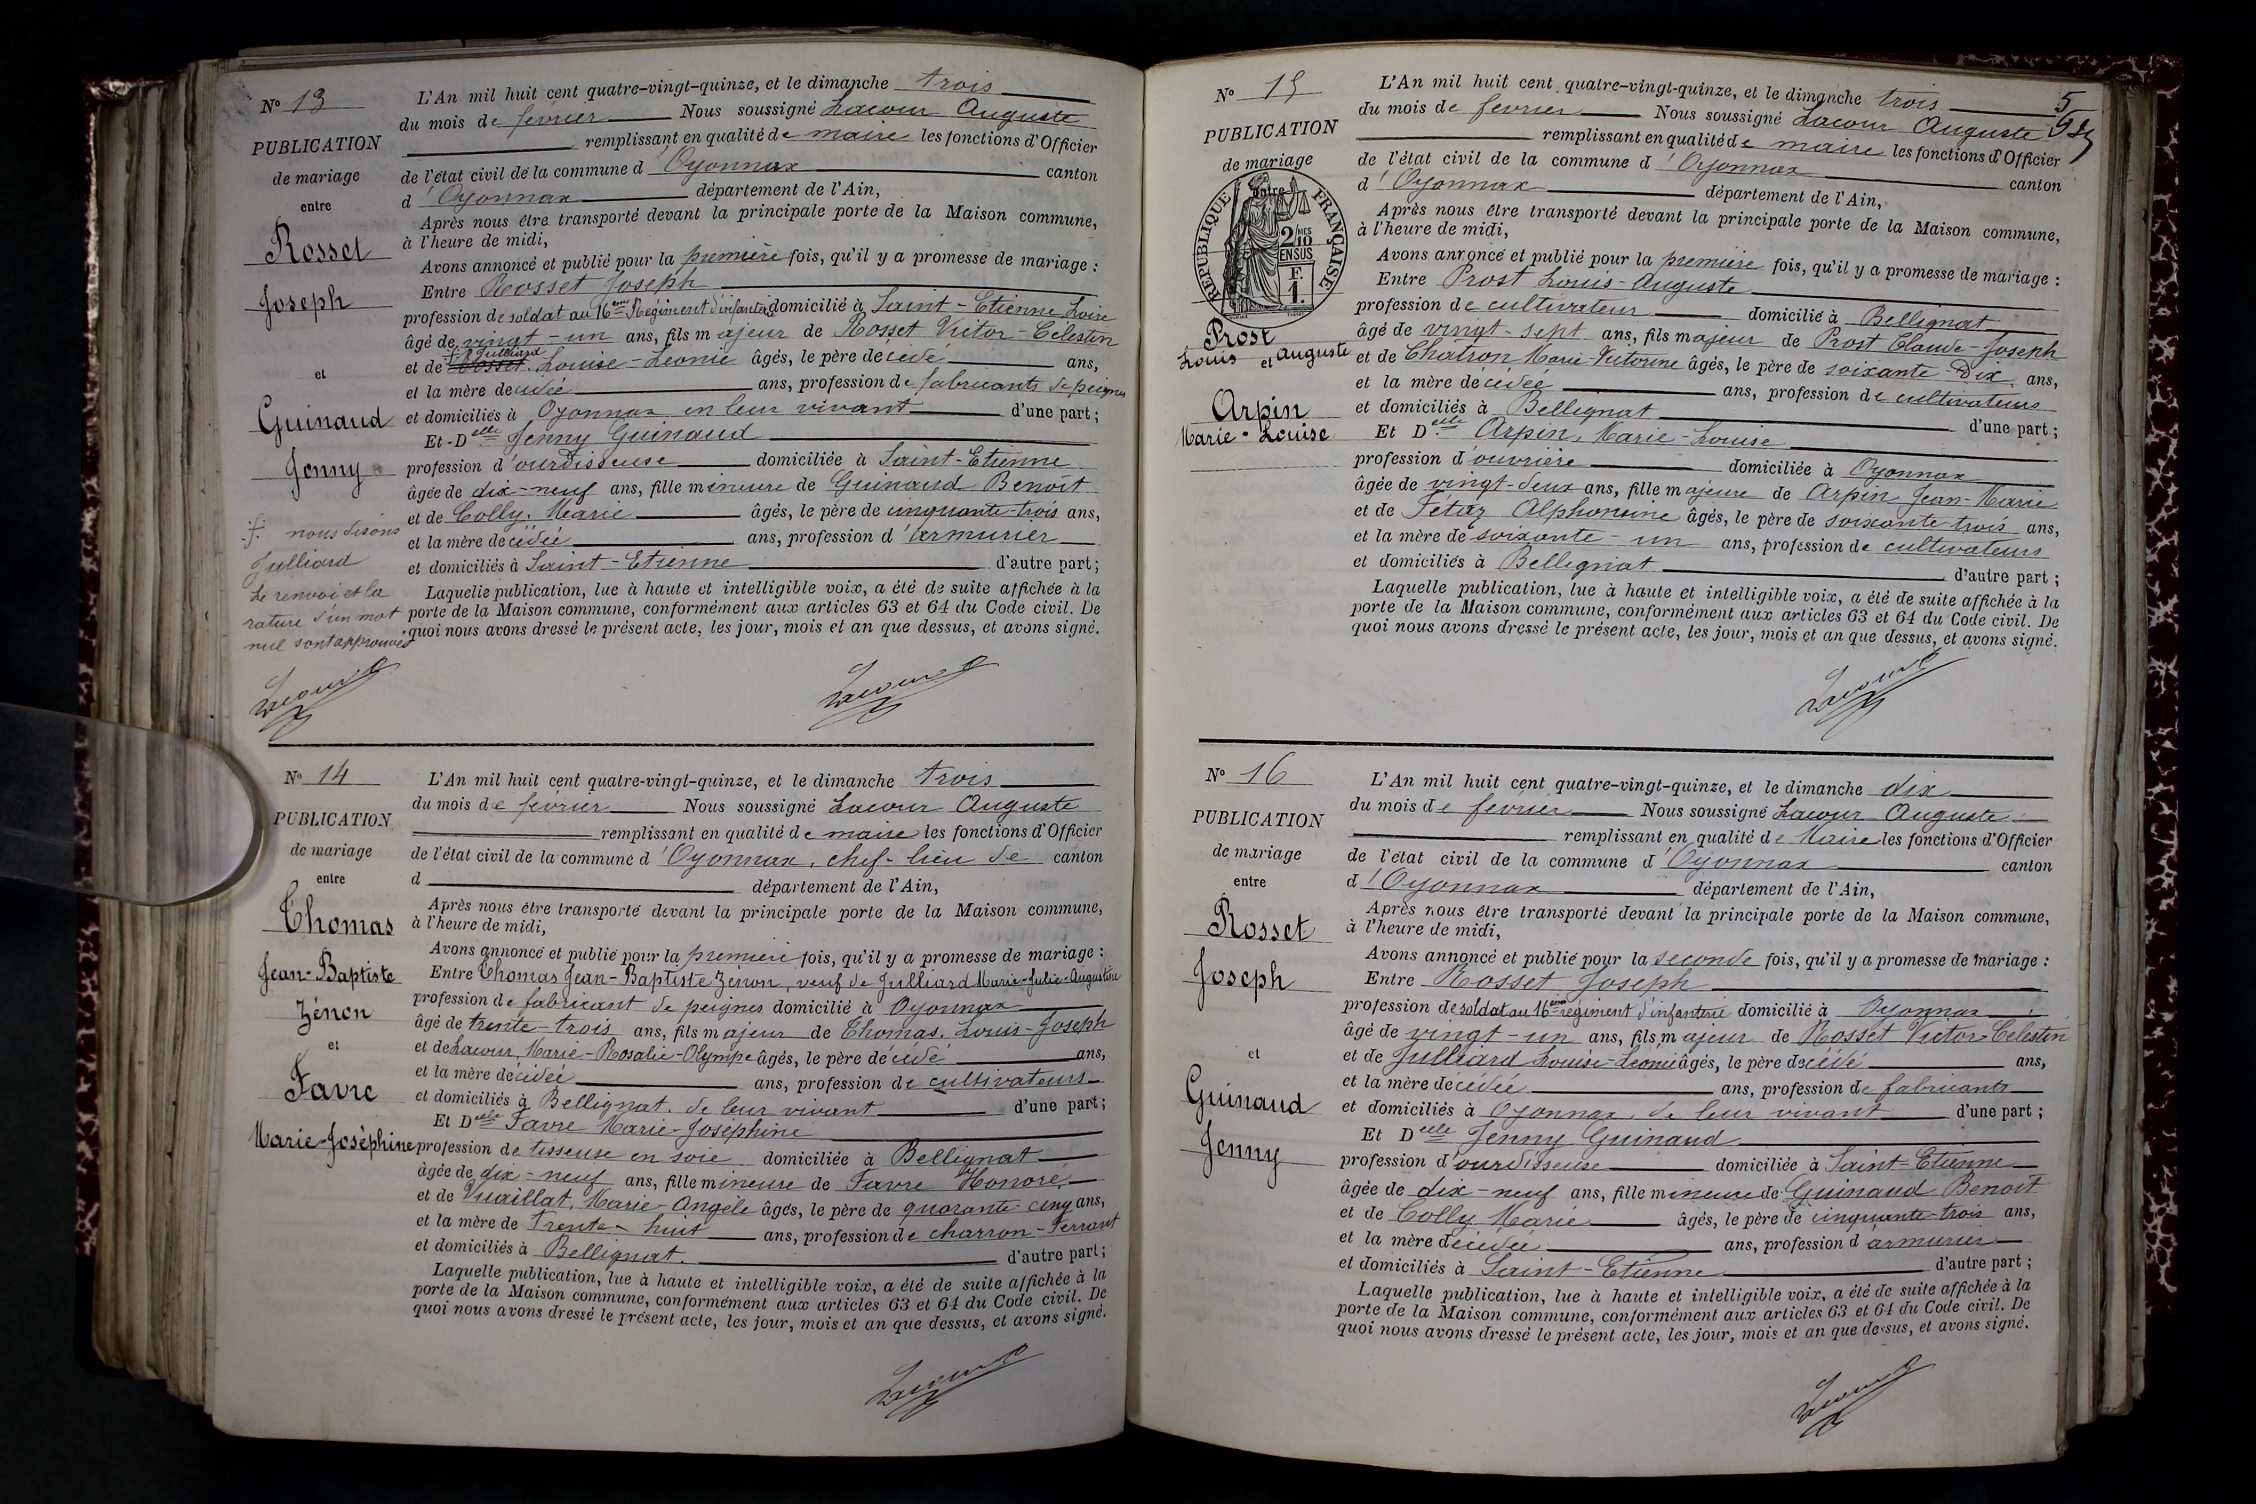 N° 13
PUBLICATION
de mariage
entre
Rosset
Joseph
et
Guinaud
Jenny
nous disons
Julliard
Le renvoi et la
rature d'un mot
nul sont approuvés
Lacour
L'An mil huit cent quatre-vingt-quinze, et le dimanche trois
du mois de février Nous soussigné Lacour Auguste
remplissant en qualité de maire les fonctions d'Officier
de l'état civil de la commune d'Oyonnax canton
d'Oyonnax département de l'Ain,
Après nous être transporté devant la principale porte de la Maison commune,
à l'heure de midi,
Avons annoncé et publié pour la première fois, qu'il y a promesse de mariage :
Entre Rosset Joseph
profession de soldat au 16eme Régiment d'infanterie domicilié à Saint-Etienne Loire
âgé de vingt-un ans, fils majeur de Rosset Victor-Celestin
Julliard
et de Rosset Louise-Leonie âgés, le père décédé ans,
et la mère decédée ans, profession de fabricants de peignes
et domiciliés à Oyonnax en leur vivant d'une part ;
Et Delle Jenny Guinaud
profession d'ourdisseuse domiciliée à Saint-Etienne
âgée de dix-neuf ans, fille mineure de Guinaud Benoit
et de Colly, Marie âgés, le père de cinquante-trois ans,
et la mère decédée ans, profession d'armurier
et domiciliés à Saint-Etienne d'autre part ;
Laquelle publication, lue à haute et intelligible voix, a été de suite affichée à la
porte de la Maison commune, conformément aux articles 63 et 64 du Code civil. De
quoi nous avons dressé le présent acte, les jour, mois et an que dessus, et avons signé.
Lacour
N° 14
PUBLICATION
de mariage
entre
Thomas
Jean-Baptiste
Zénon
et
Favre
Marie-Joséphine
L'An mil huit cent quatre-vingt-quinze, et le dimanche trois
du mois de février Nous soussigné Lacour Auguste
remplissant en qualité de maire les fonctions d'Officier
de l'état civil de la commune d'Oyonnax, chef-lieu de canton
d département de l'Ain,
Après nous être transporté devant la principale porte de la Maison commune,
à l'heure de midi,
Avons annoncé et publié pour la première fois, qu'il y a promesse de mariage :
Entre Thomas Jean-Baptiste Zénon, veuf de Julliard Marie-Julie-Augustine
profession de fabricant de peignes domicilié à Oyonnax
âgé de trente-trois ans, fils majeur de Thomas, Louis-Joseph
et de Lacour, Marie-Rosalie-Olympe âgés, le père décédé ans,
et la mère décédée ans, profession de cultivateurs
et domiciliés à Bellignat. de leur vivant d'une part ;
Et Delle Favre Marie-Joséphine
profession de tisseuse en soie domiciliée à Bellignat
âgée de dix-neuf ans, fille mineure de Favre Honoré
et de Vuaillat, Marie-Angèle âgés, le père de quarante-cinq ans,
et la mère de trente-huit ans, profession de charron-ferrant
et domiciliés à Bellignat. d'autre part ;
Laquelle publication, lue à haute et intelligible voix, a été de suite affichée à la
porte de la Maison commune, conformément aux articles 63 et 64 du Code civil. De
quoi nous avons dressé le présent acte, les jour, mois et an que dessus, et avons signé.
Lacour
5
N° 15
PUBLICATION
de mariage
entre
RÉPUBLIQUE FRANÇAISE
2/10 MES
EN SUS
F.
1.
Prost
Louis Auguste
et
Arpin
Marie-Louise
L'An mil huit cent quatre-vingt-quinze, et le dimanche trois
du mois de février Nous soussigné Lacour Auguste
remplissant en qualité de maire les fonctions d'Officier
de l'état civil de la commune d'Oyonnax canton
d'Oyonnax département de l'Ain,
Après nous être transporté devant la principale porte de la Maison commune,
à l'heure de midi,
Avons annoncé et publié pour la première fois, qu'il y a promesse de mariage :
Entre Prost Louis-Auguste
profession de cultivateur domicilié à Bellignat
âgé de vingt-sept ans, fils majeur de Prost Claude-Joseph
et de Chatron Marie-Victorine âgés, le père de soixante-dix ans,
et la mère décédée ans, profession de cultivateurs
et domiciliés à Bellignat d'une part ;
Et Delle Arpin, Marie-Louise
profession d'ouvrière domiciliée à Oyonnax
âgée de vingt-deux ans, fille majeure de Arpin Jean-Marie
et de Fétaz Alphonsine âgés, le père de soixante-trois ans,
et la mère de soixante-un ans, profession de cultivateurs
et domiciliés à Bellegnat d'autre part ;
Laquelle publication, lue à haute et intelligible voix, a été de suite affichée à la
porte de la Maison commune, conformément aux articles 63 et 64 du Code civil. De
quoi nous avons dressé le présent acte, les jour, mois et an que dessus, et avons signé.
Lacour
N° 16
PUBLICATION
de mariage
entre
Rosset
Joseph
et
Guinaud
Jenny
L'An mil huit cent quatre-vingt-quinze, et le dimanche dix
du mois de février Nous soussigné Lacour Auguste
remplissant en qualité de Maire les fonctions d'Officier
de l'état civil de la commune d'Oyonnax canton
d'Oyonnax département de l'Ain,
Après nous être transporté devant la principale porte de la Maison commune,
à l'heure de midi,
Avons annoncé et publié pour la seconde fois, qu'il y a promesse de mariage :
Entre Rosset Joseph
profession de soldat au 16eme régiment d'infanterie domicilié à Oyonnax
âgé de vingt-un ans, fils majeur de Rosset Victor Celestin
et de Julliard Louise-Leonie âgés, le père decédé ans,
et la mère decédée ans, profession de fabricants
et domiciliés à Oyonnax, de leur vivant d'une part ;
Et Delle Jenny Guinaud
profession d'ourdisseuse domiciliée à Saint-Etienne
âgée de dix-neuf ans, fille mineure de Guinaud Benoit
et de Colly Marie âgés, le père de cinquante-trois ans,
et la mère décédée ans, profession d'armurier
et domiciliés à Saint-Etienne d'autre part ;
Laquelle publication, lue à haute et intelligible voix, a été de suite affichée à la
porte de la Maison commune, conformément aux articles 63 et 64 du Code civil. De
quoi nous avons dressé le présent acte, les jour, mois et an que dessus, et avons signé.
Lacour